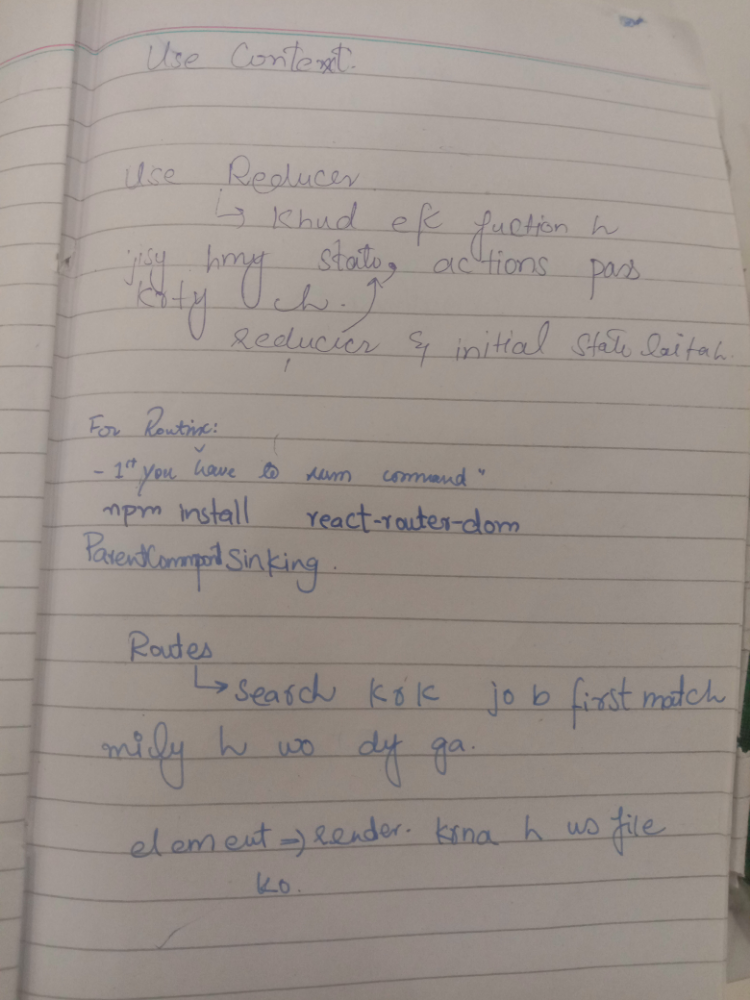 Use Context.
Use Reducer
↳ Khud ek fuction h
jisy hmy state, actions pass
krty h.
reducier & initial state laitah.
For Routinx:
- 1st you have to rum command"
npm install react-router-dom
ParentCommport Sinking.
Routes
↳ Search krk jo b first match
mily h wo dy ga.
element => render. krna h us file
ko.